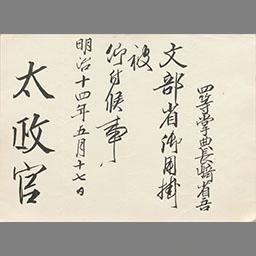 四等掌典長﨑省吾
文部省御用掛
被
仰付候事
明治十四年五月十七日
太政官